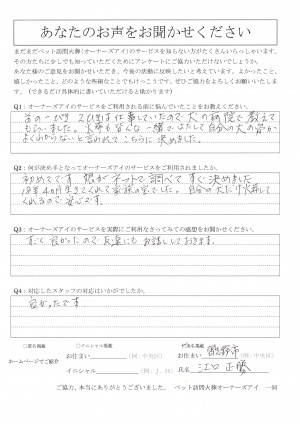 あなたのお声をお聞かせください
まだまだペット訪問火葬(オーナーズアイ)のサービスを知らない方がたくさんいらっしゃいます。
その方たちに少しでも知っていただくためにアンケートにご協力いただけないでしょうか。
あなた様のご意見をお聞かせいただき、今後の活動に反映したいと考えています。よかったこと、
嬉しかったこと、どのような些細なことでもけっこうです。ぜひご協力をよろしくお願いいたします。
(できるだけ具体的に書いていただけると助かります)
Q1:オーナーズアイのサービスをご利用される前に悩んでいたことをお教えください。
もらいました。火葬も皆んな一緒
よくわからないと言われてこちらに決めました。
Q2:何が決め手となってオーナーズアイのサービスをご利用されましたか。
初めてです 娘がネットで調べてすぐ決めました
18年4か月生きてくれて家族の宝でした。自分の犬だけ火葬して
くれるので安心です。
Q3:オーナーズアイのサービスを実際にご利用なさってみての感想をお聞かせください。
すごく良かったので友達にもお話ししておきます。
Q4:対応したスタッフの対応はいかがでしたか。
良かったです
□匿名掲載 □イニシャル掲載 実名掲載
ホームページでご紹介 お住まい (例:中央区) お住まい 熊野市 (例:中央区)
イニシャル (例:J.H) 氏名 江口 正勝
ご協力、本当にありがとうございました。 ペット訪問火葬オーナーズアイ 一同